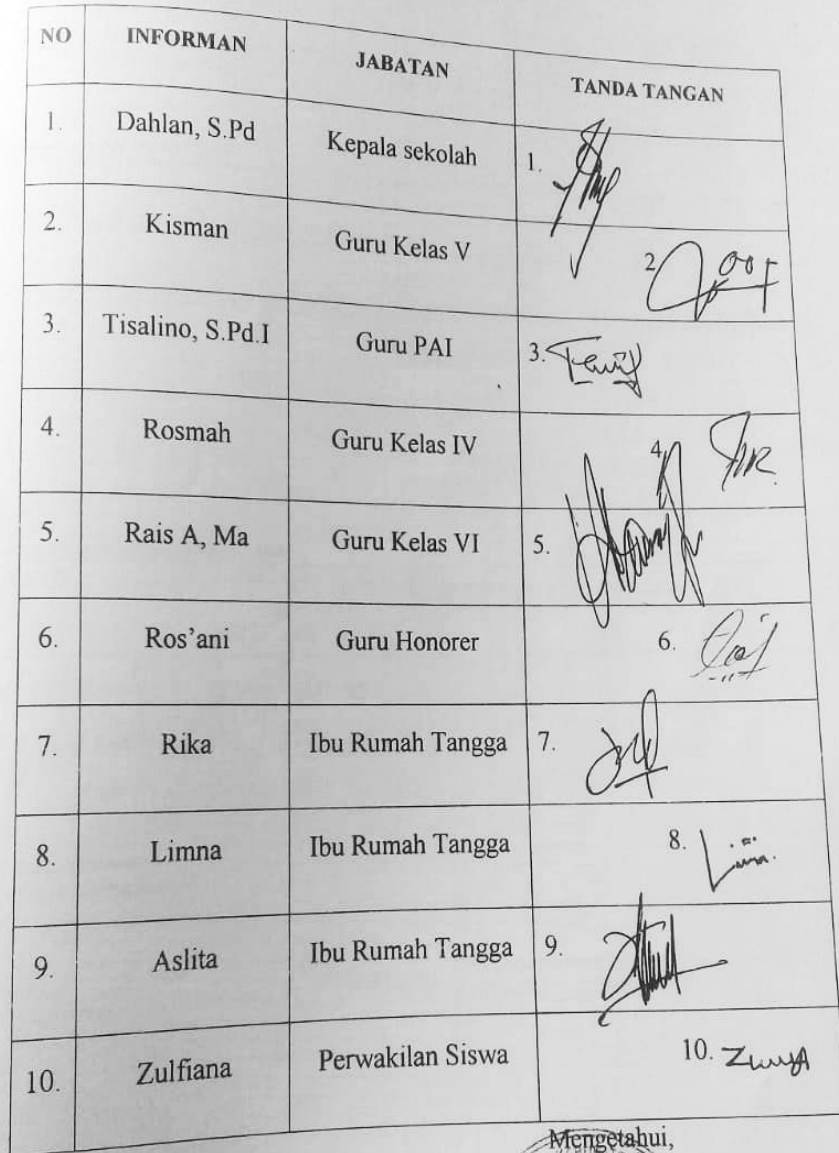 NO INFORMAN JABATAN TANDA TANGAN
1. Dahlan, S.Pd Kepala sekolah 1.
2. Kisman Guru Kelas V 2.
3. Tisalino, S.Pd.I Guru PAI 3.
4. Rosmah Guru Kelas IV 4.
5. Rais A, Ma Guru Kelas VI 5.
6. Ros'ani Guru Honorer 6.
7. Rika Ibu Rumah Tangga 7.
8. Limna Ibu Rumah Tangga 8.
9. Aslita Ibu Rumah Tangga 9.
10. Zulfiana Perwakilan Siswa 10.
Mengetahui,